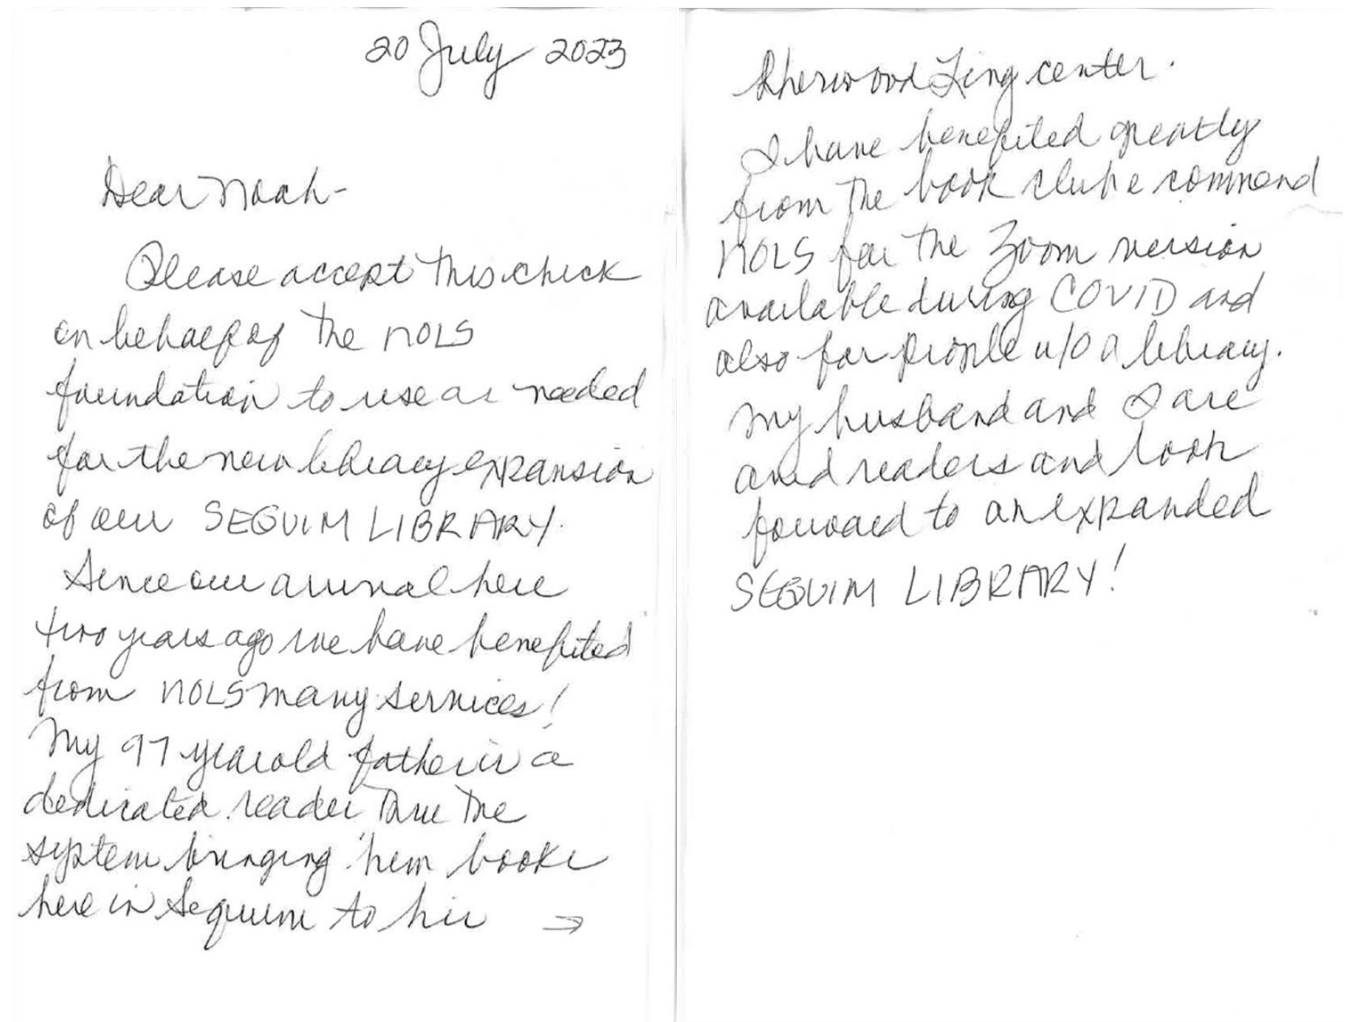 20 July 2023
Dear Noah-
Please accept this check
on behalf of the NOLS
foundation to use as needed
for the new library expansion
of our SEQUIM LIBRARY.
Since our arrival here
two years ago we have benefited
from NOLS many services!
My 97 year old father is a
dedicated reader thru the
system bringing him books
here in Sequim to his →
Sherwood Living center.
I have benefited greatly
from the book club & commend
NOLS for the Zoom version
available during COVID and
also for people w/o a library.
My husband and I are
avid readers and look
forward to an expanded
SEQUIM LIBRARY!